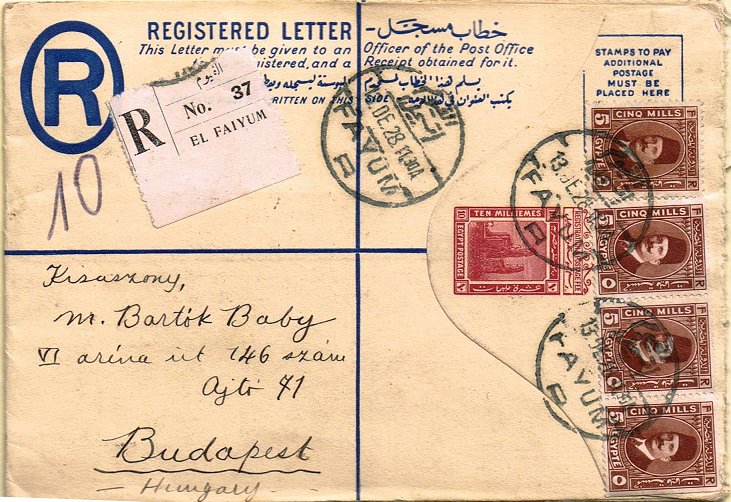 REGISTERED LETTER
خطاب مسجل
This Letter must be given to an Officer of the Post Office
registered, and a Receipt obtained for it.
يسلم هذا الخطاب
WRITTEN ON THIS SIDE
STAMPS TO PAY
ADDITIONAL
POSTAGE
MUST BE
PLACED HERE
R
الفيوم
R
No. 37
EL FAIYUM
10
FAYUM
DE. 28
R
TEN MILLIEMES
EGYPT POSTAGE
10
CINQ MILLS
EGYPTE
5
FAYUM
13. DE. 28
R
CINQ MILLS
5
CINQ MILLS
EGYPTE
5
FAYUM
R
CINQ MILLS
EGYPTE
5
Kisaszony,
M. Bartók Baby
VI aréna út 146 szám
Ajtó 71
Budapest
Hungary